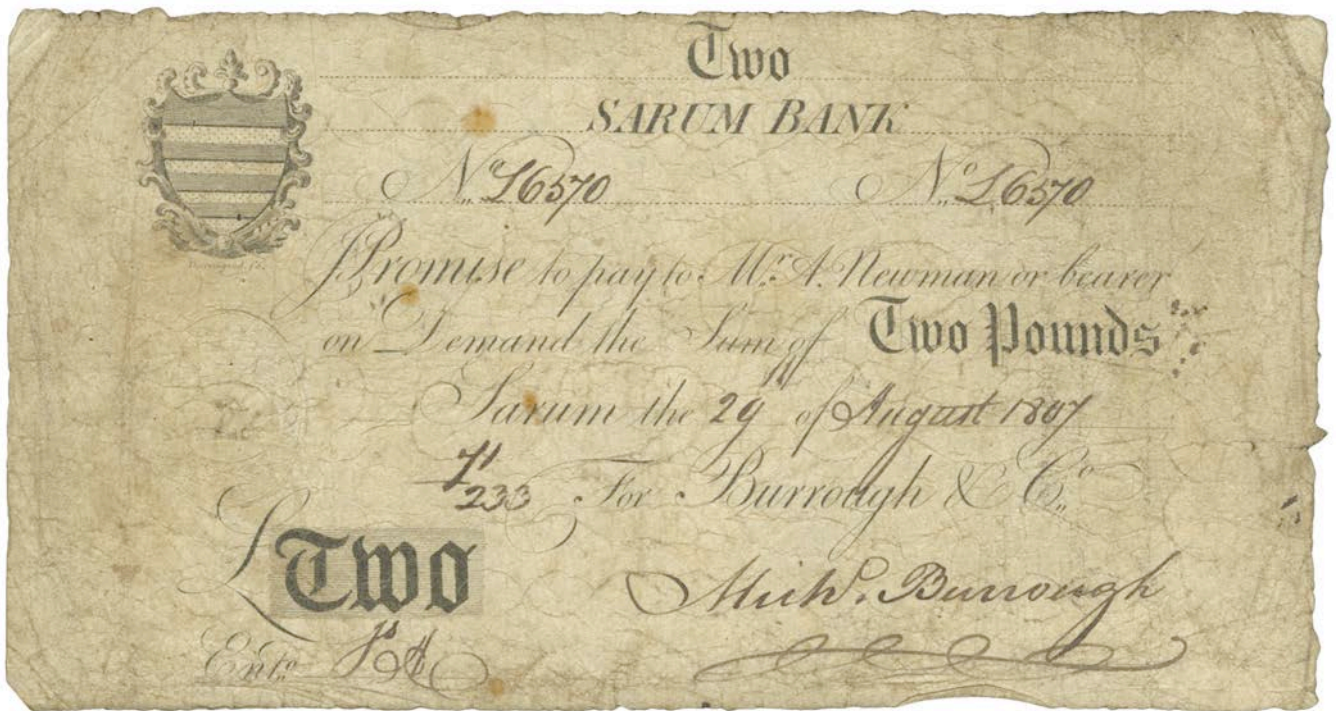 Two
SARUM BANK
No. L6570 No. L6570
I Promise to pay to Mr. A. Newman or bearer
on Demand the Sum of Two Pounds
Sarum the 29 of August 1807
233 For Burrough & Co.
£ Two
Michl. Burrough
Entd.